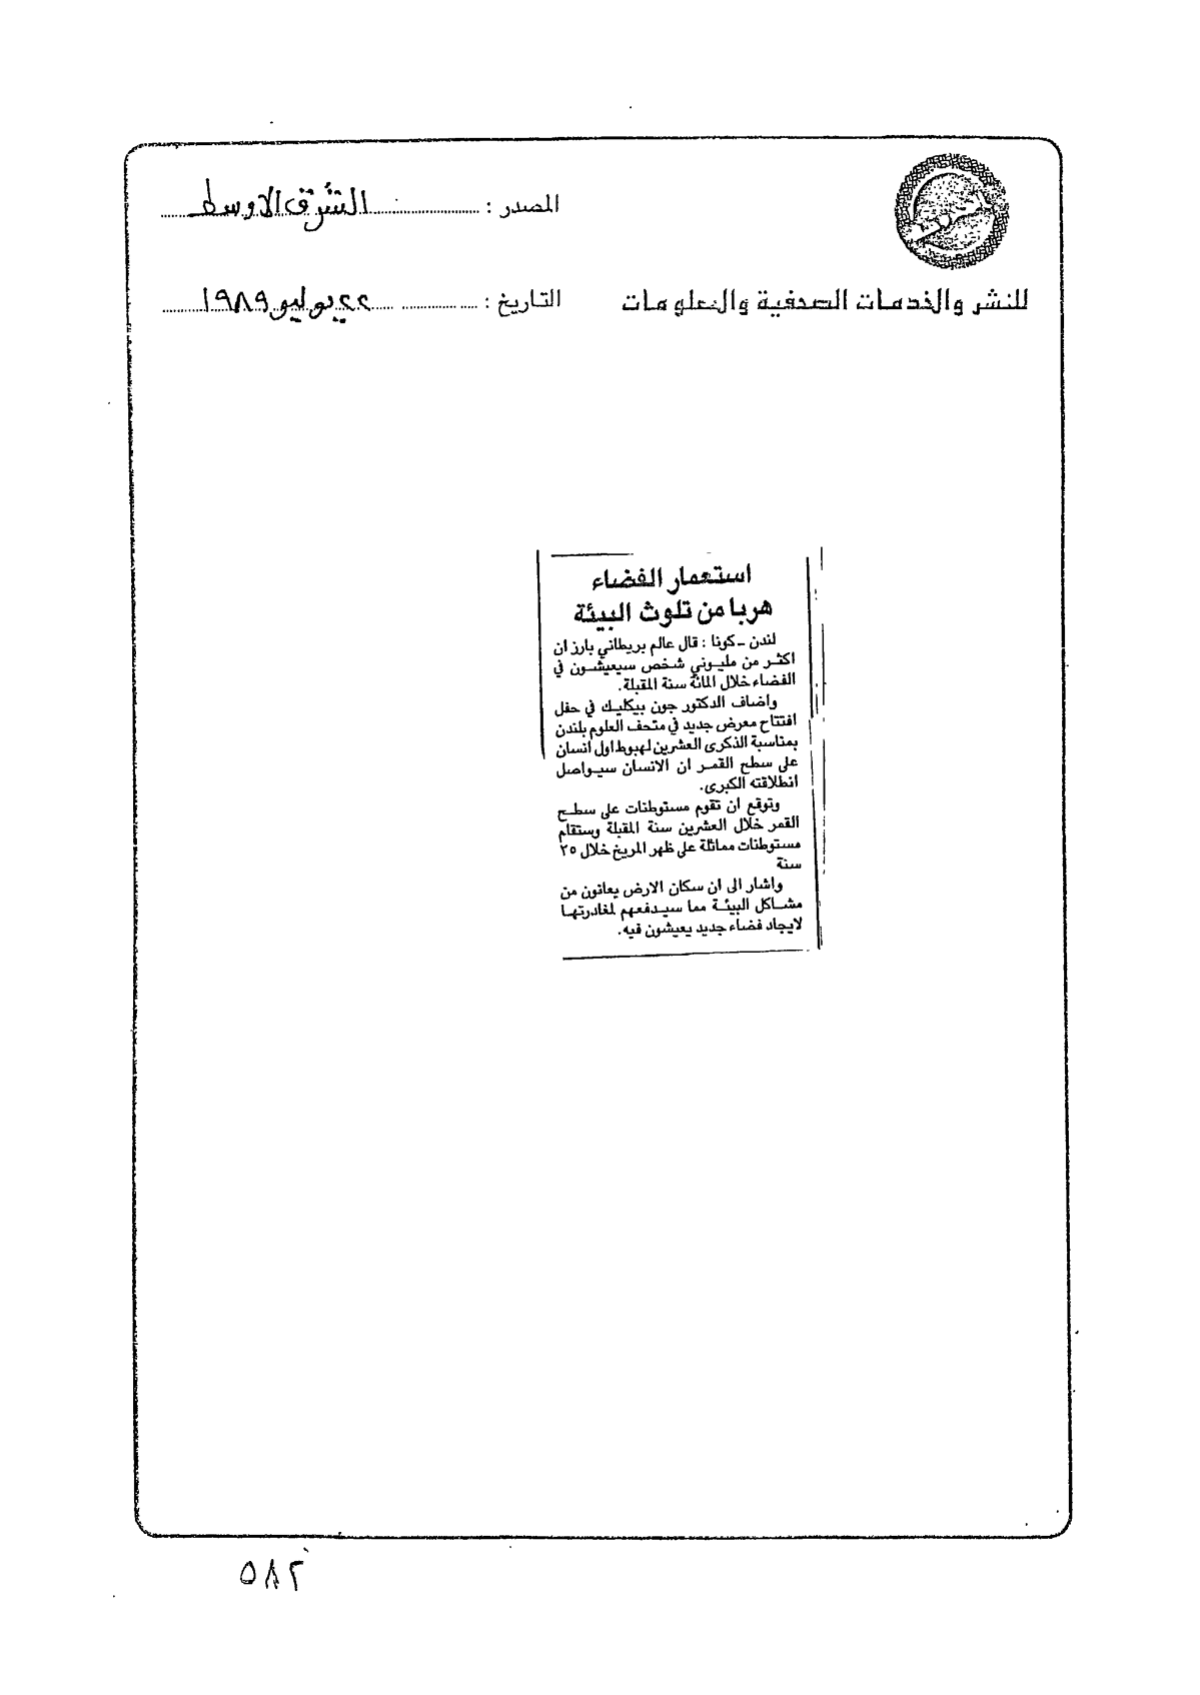 المصدر : الشرق الاوسط
للنشر والخدمات الصحفية والمعلومات
التاريخ : ٢٢ يوليو ١٩٨٩
استعمار الفضاء
هربا من تلوث البيئة
لندن - كونا : قال عالم بريطاني بارز ان
اكثر من مليوني شخص سيعيشون في
الفضاء خلال المائة سنة المقبلة.
واضاف الدكتور جون بيكليك في حفل
افتتاح معرض جديد في متحف العلوم بلندن
بمناسبة الذكرى العشرين لهبوط اول انسان
على سطح القمر ان الانسان سيواصل
انطلاقته الكبرى.
وتوقع ان تقوم مستوطنات على سطح
القمر خلال العشرين سنة المقبلة وستقام
مستوطنات مماثلة على ظهر المريخ خلال ٢٥
سنة
واشار الى ان سكان الارض يعانون من
مشاكل البيئة مما سيدفعهم لمغادرتها
لايجاد فضاء جديد يعيشون فيه.
٥٨٢